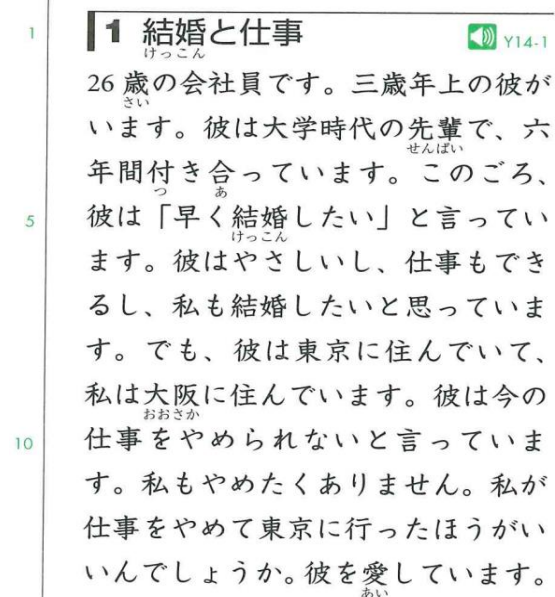 1 結婚と仕事
けっこん
Y14-1
1
26歳の会社員です。三歳年上の彼が
さい
います。彼は大学時代の先輩で、六
せんぱい
年間付き合っています。このごろ、
つ あ
5
彼は「早く結婚したい」と言ってい
けっこん
ます。彼はやさしいし、仕事もでき
るし、私も結婚したいと思っていま
す。でも、彼は東京に住んでいて、
私は大阪に住んでいます。彼は今の
おおさか
10
仕事をやめられないと言っていま
す。私もやめたくありません。私が
仕事をやめて東京に行ったほうがい
いんでしょうか。彼を愛しています。
あい